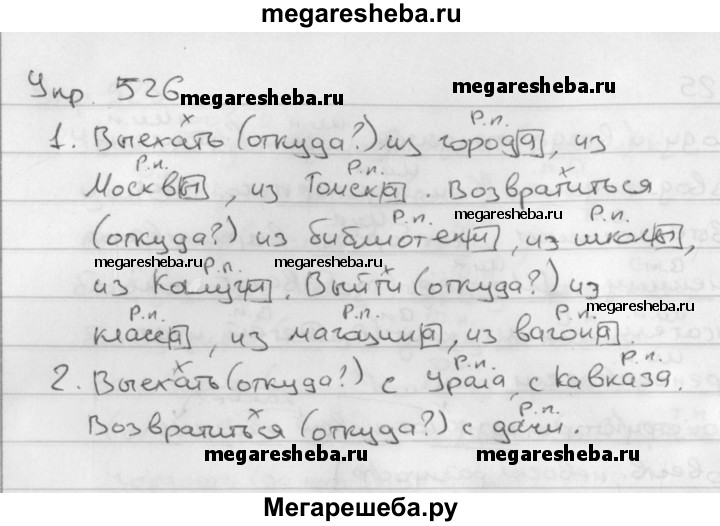 megaresheba.ru
Упр. 526
megaresheba.ru
Р.п.
1. Выехать (откуда?) из города, из
Р.п. Р.п.
Москвы, из Томска. Возвратиться
megaresheba.ru
Р.п. Р.п.
(откуда?) из библиотеки, из школы,
megaresheba.ru Р.п. megaresheba.ru
из Калуги. Выйти (откуда?) из
megaresheba.ru
Р.п. Р.п. Р.п.
класса, из магазина, из вагона.
Р.п. Р.п.
2. Выехать (откуда?) с Урала, с Кавказа.
Р.п.
Возвратиться (откуда?) с дачи.
megaresheba.ru megaresheba.ru
Мегарешеба.ру